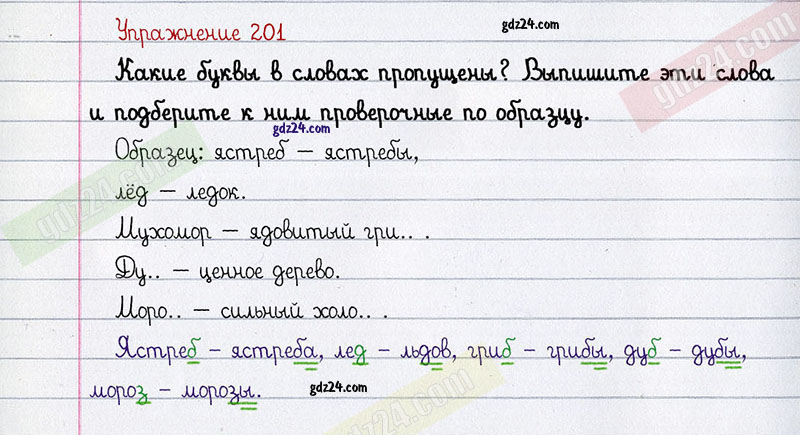 Упражнение 201
gdz24.com
Какие буквы в словах пропущены? Выпишите эти слова
и подберите к ним проверочные по образцу.
gdz24.com
Образец: ястреб – ястребы,
лёд – ледок.
Мухомор – ядовитый гри.. .
Ду.. – ценное дерево.
Моро.. – сильный холо.. .
Ястреб – ястреба, лед – льдов, гриб – грибы, дуб – дубы,
мороз – морозы.
gdz24.com
gdz24.com
gdz24.com
gdz24.com